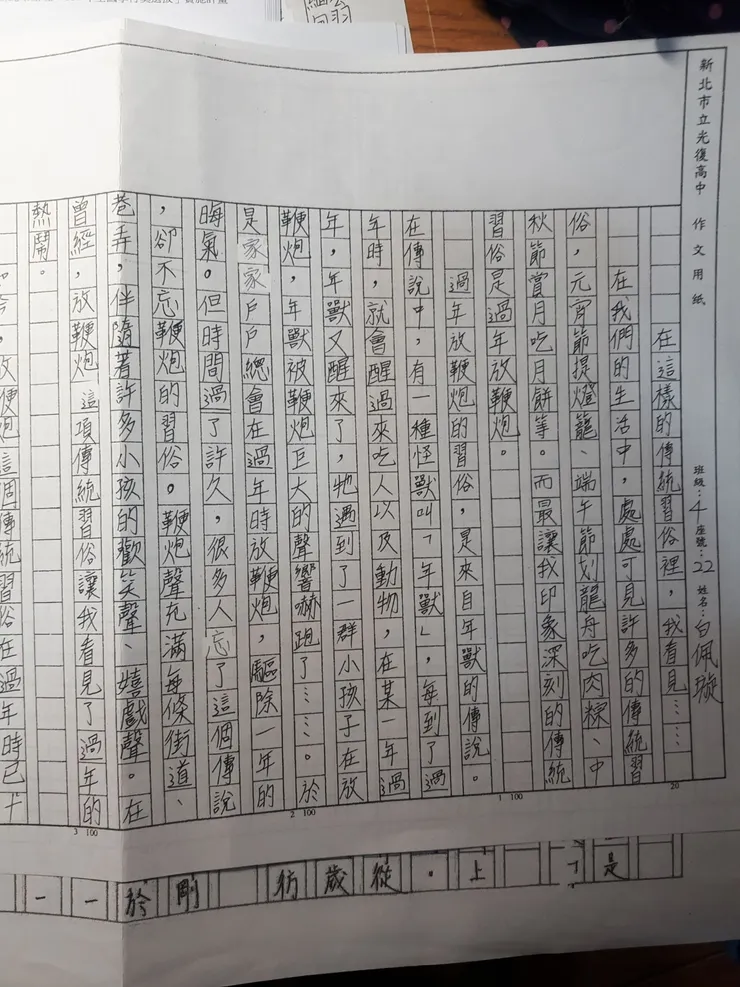 新北市立光復高中　作文用紙　班級：4 座號：22 姓名：白佩璇
在這樣的傳統習俗裡，我看見……
在我們的生活中，處處可見許多的傳統習
俗，元宵節提燈籠、端午節划龍舟吃肉粽、中
秋節賞月吃月餅等。而最讓我印象深刻的傳統
習俗是過年放鞭炮。
過年放鞭炮的習俗，是來自年獸的傳說。
在傳說中，有一種怪獸叫「年獸」，每到了過
年時，就會醒過來吃人以及動物，在某一年過
年，年獸又醒來了，牠遇到了一群小孩子在放
鞭炮，年獸被鞭炮巨大的聲響嚇跑了……。於
是家家戶戶總會在過年時放鞭炮，驅除一年的
晦氣。但時間過了許久，很多人忘了這個傳說
，卻不忘鞭炮的習俗。鞭炮聲充滿每條街道、
巷弄，伴隨著許多小孩的歡笑聲、嬉戲聲。在
曾經，放鞭炮這項傳統習俗讓我看見了過年的
熱鬧。
放鞭炮這個傳統習俗在過年時已
20
1 100
2 100
3 100
是「上。從歲彷剛於一一